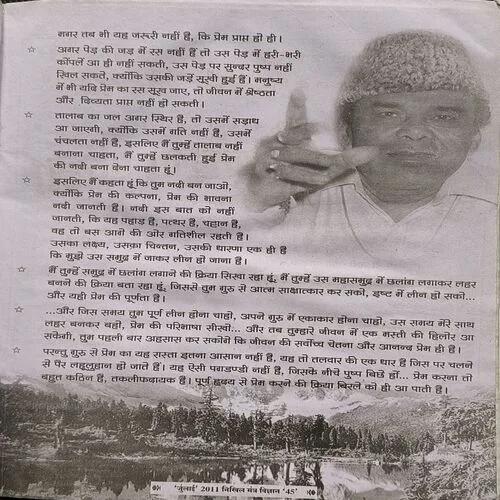 मगर तब भी यह जरूरी नहीं है, कि प्रेम प्राप्त हो ही।
☆ अगर पेड़ की जड़ में रस नहीं है तो उस पेड़ में हरी-भरी
कोंपलें आ ही नहीं सकती, उस पेड़ पर सुन्दर पुष्प नहीं
खिल सकते, क्योंकि उसकी जड़ें सूखी हुई हैं। मनुष्य
में भी यदि प्रेम का रस सूख जाए, तो जीवन में श्रेष्ठता
और दिव्यता प्राप्त नहीं हो सकती।
☆ तालाब का जल अगर स्थिर है, तो उसमें सड़ाध
आ जाएगी, क्योंकि उसमें गति नहीं है, उसमें
चंचलता नहीं है, इसलिए मैं तुम्हें तालाब नहीं
बनाना चाहता, मैं तुम्हें छलकती हुई प्रेम
की नदी बना देना चाहता हूं।
☆ इसलिए मैं कहता हूं कि तुम नदी बन जाओ,
क्योंकि प्रेम की कल्पना, प्रेम की भावना
नदी जानती है। नदी इस बात को नहीं
जानती, कि यह पहाड़ है, पत्थर है, चट्टान है,
वह तो बस आगे की ओर गतिशील रहती है।
उसका लक्ष्य, उसका चिन्तन, उसकी धारणा एक ही है
कि मुझे उस समुद्र में जाकर लीन हो जाना है।
☆ मैं तुम्हें समुद्र में छलांग लगाने की क्रिया सिखा रहा हूं, मैं तुम्हें उस महासमुद्र में छलांग लगाकर लहर
बनने की क्रिया बता रहा हूं, जिससे तुम गुरु से आत्म साक्षात्कार कर सको, इष्ट में लीन हो सको...
और यही प्रेम की पूर्णता है।
☆ ...और जिस समय तुम पूर्ण लीन होना चाहो, अपने गुरु में एकाकार होना चाहो, उस समय मेरे साथ
लहर बनकर बहो, प्रेम की परिभाषा सीखो... और तब तुम्हारे जीवन में एक मस्ती की हिलोर आ
सकेगी, तुम पहली बार अहसास कर सकोगे कि जीवन की सर्वोच्च चेतना और आनन्द प्रेम ही है।
☆ परन्तु गुरु से प्रेम का यह रास्ता इतना आसान नहीं है, यह तो तलवार की एक धार है जिस पर चलने
से पैर लहूलुहान हो जाते हैं। यह ऐसी पगडण्डी नहीं है, जिसके नीचे पुष्प बिछे हों... प्रेम करना तो
बहुत कठिन है, तकलीफदायक है। पूर्ण हृदय से प्रेम करने की क्रिया बिरले को ही आ पाती है।
'जुलाई' 2011 निखिल मंत्र विज्ञान '45'